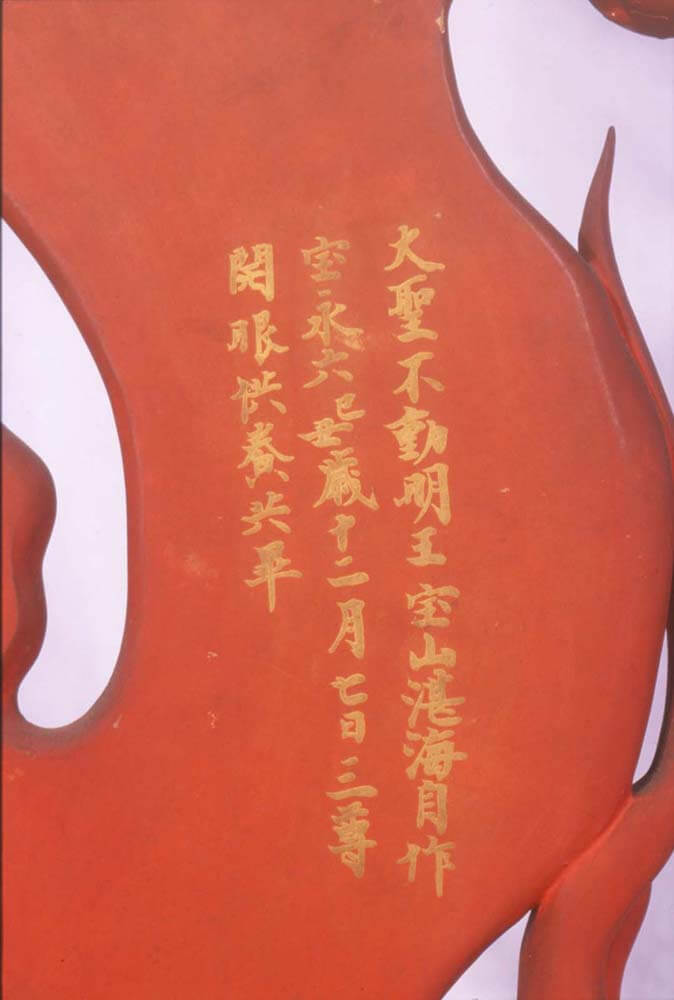 大聖不動明王宝山湛海自作
宝永六己丑歳十二月七日三尊
開眼供養共